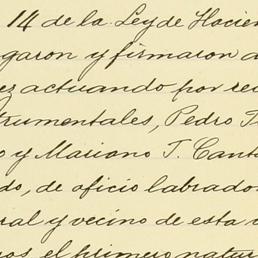 14 de la Ley de Hacien
garon y firmaron a
ez actuando por rec
trumentales, Pedro T
o y Mariano T. Canto
do, de oficio labrado
ral y vecino de esta
os el primero natur